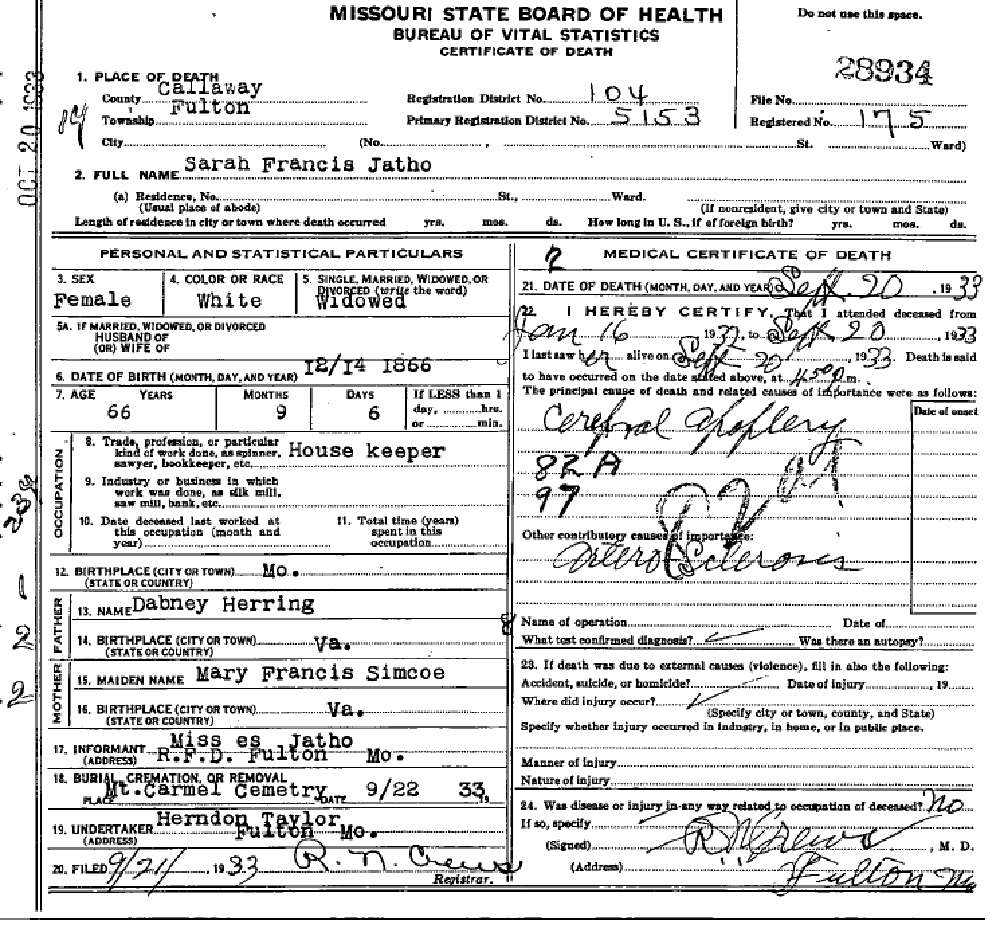 MISSOURI STATE BOARD OF HEALTH
BUREAU OF VITAL STATISTICS
CERTIFICATE OF DEATH
Do not use this space.
28934
OCT 20 1933
1. PLACE OF DEATH
County Callaway
Township Fulton
City (No. , St. Ward)
Registration District No. 104
Primary Registration District No. 5153
File No.
Registered No. 175
2. FULL NAME Sarah Francis Jatho
(a) Residence, No. St., Ward.
(Usual place of abode) (If nonresident, give city or town and State)
Length of residence in city or town where death occurred yrs. mos. ds. How long in U. S., if of foreign birth? yrs. mos. ds.
PERSONAL AND STATISTICAL PARTICULARS
3. SEX Female
4. COLOR OR RACE White
5. SINGLE, MARRIED, WIDOWED, OR DIVORCED (write the word) Widowed
5A. IF MARRIED, WIDOWED, OR DIVORCED
HUSBAND OF
(OR) WIFE OF
6. DATE OF BIRTH (MONTH, DAY, AND YEAR) 12/14 1866
7. AGE YEARS 66 MONTHS 9 DAYS 6 If LESS than 1 day, hrs. or min.
OCCUPATION
8. Trade, profession, or particular kind of work done, as spinner, sawyer, bookkeeper, etc. House keeper
9. Industry or business in which work was done, as silk mill, saw mill, bank, etc.
10. Date deceased last worked at this occupation (month and year)
11. Total time (years) spent in this occupation
12. BIRTHPLACE (CITY OR TOWN) Mo.
(STATE OR COUNTRY)
FATHER
13. NAME Dabney Herring
14. BIRTHPLACE (CITY OR TOWN) Va.
(STATE OR COUNTRY)
MOTHER
15. MAIDEN NAME Mary Francis Simcoe
16. BIRTHPLACE (CITY OR TOWN) Va.
(STATE OR COUNTRY)
17. INFORMANT Miss es Jatho
(ADDRESS) R.F.D. Fulton Mo.
18. BURIAL, CREMATION, OR REMOVAL
PLACE Mt.Carmel Cemetry DATE 9/22 1933
19. UNDERTAKER Herndon Taylor
(ADDRESS) Fulton Mo.
20. FILED 9/21/, 1933 R. N. Crews
Registrar.
2 MEDICAL CERTIFICATE OF DEATH
21. DATE OF DEATH (MONTH, DAY, AND YEAR) Sept. 20, 1933
22. I HEREBY CERTIFY, That I attended deceased from
Jan 16 1933, to Sept 20, 1933
I last saw her alive on Sept 20, 1933 Death is said
to have occurred on the date stated above, at 4:50 p.m.
The principal cause of death and related causes of importance were as follows:
Date of onset
Cerebral Apoplexy
82 A
97
Other contributory causes of importance:
Artero Sclerosis
Name of operation Date of
What test confirmed diagnosis? Was there an autopsy?
23. If death was due to external causes (violence), fill in also the following:
Accident, suicide, or homicide? Date of injury , 19
Where did injury occur?
(Specify city or town, county, and State)
Specify whether injury occurred in industry, in home, or in public place.
Manner of injury
Nature of injury
24. Was disease or injury in any way related to occupation of deceased? No
If so, specify
(Signed) R N Crews, M. D.
(Address) Fulton Mo